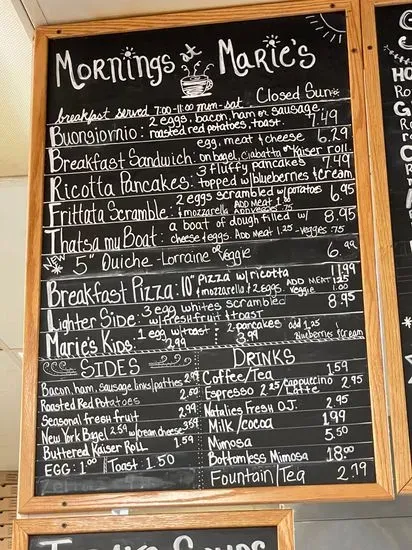 Mornings at Marie's
breakfast served 7:00-11:00 mon-sat. Closed Sun
Buongiornio: 2 eggs, bacon, ham or sausage, roasted red potatoes, toast. 7.49
Breakfast Sandwich: egg, meat & cheese on bagel, ciabatta or Kaiser roll. 6.29
Ricotta Pancakes: 3 fluffy pancakes topped w/blueberries & cream 7.49
Frittata Scramble: 2 eggs scrambled w/potatoes & mozzarella ADD MEAT 1.00 ADD VEGGIES .75 6.95
Thatsa my Boat: a boat of dough filled w/ cheese & eggs. Add MEAT 1.25 - veggies .75 8.95
NEW 5" Quiche - Lorraine or Veggie 6.99
Breakfast Pizza: 10" pizza w/ricotta & mozzarella & 2 eggs. ADD MEAT 1.25 veggie 1.00 11.99
Lighter Side: 3 egg whites scrambled w/fresh fruit & toast 8.95
Marie's Kids: 1 egg w/toast 2.99 2 pancakes 3.99 add 1.25 blueberries & cream
SIDES
Bacon, ham, sausage links/patties 2.99
Roasted Red Potatoes 2.50
Seasonal fresh fruit 2.99
New York Bagel 2.59 w/cream cheese 3.59
Buttered Kaiser Roll 1.59
EGG: 1.00 Toast: 1.50
DRINKS
Coffee/Tea 1.59
Espresso 2.25/Cappuccino Latte 2.95
Natalies Fresh O.J. 2.95
Milk/cocoa 1.99
Mimosa 5.50
Bottomless Mimosa 18.00
Fountain/Tea 2.79